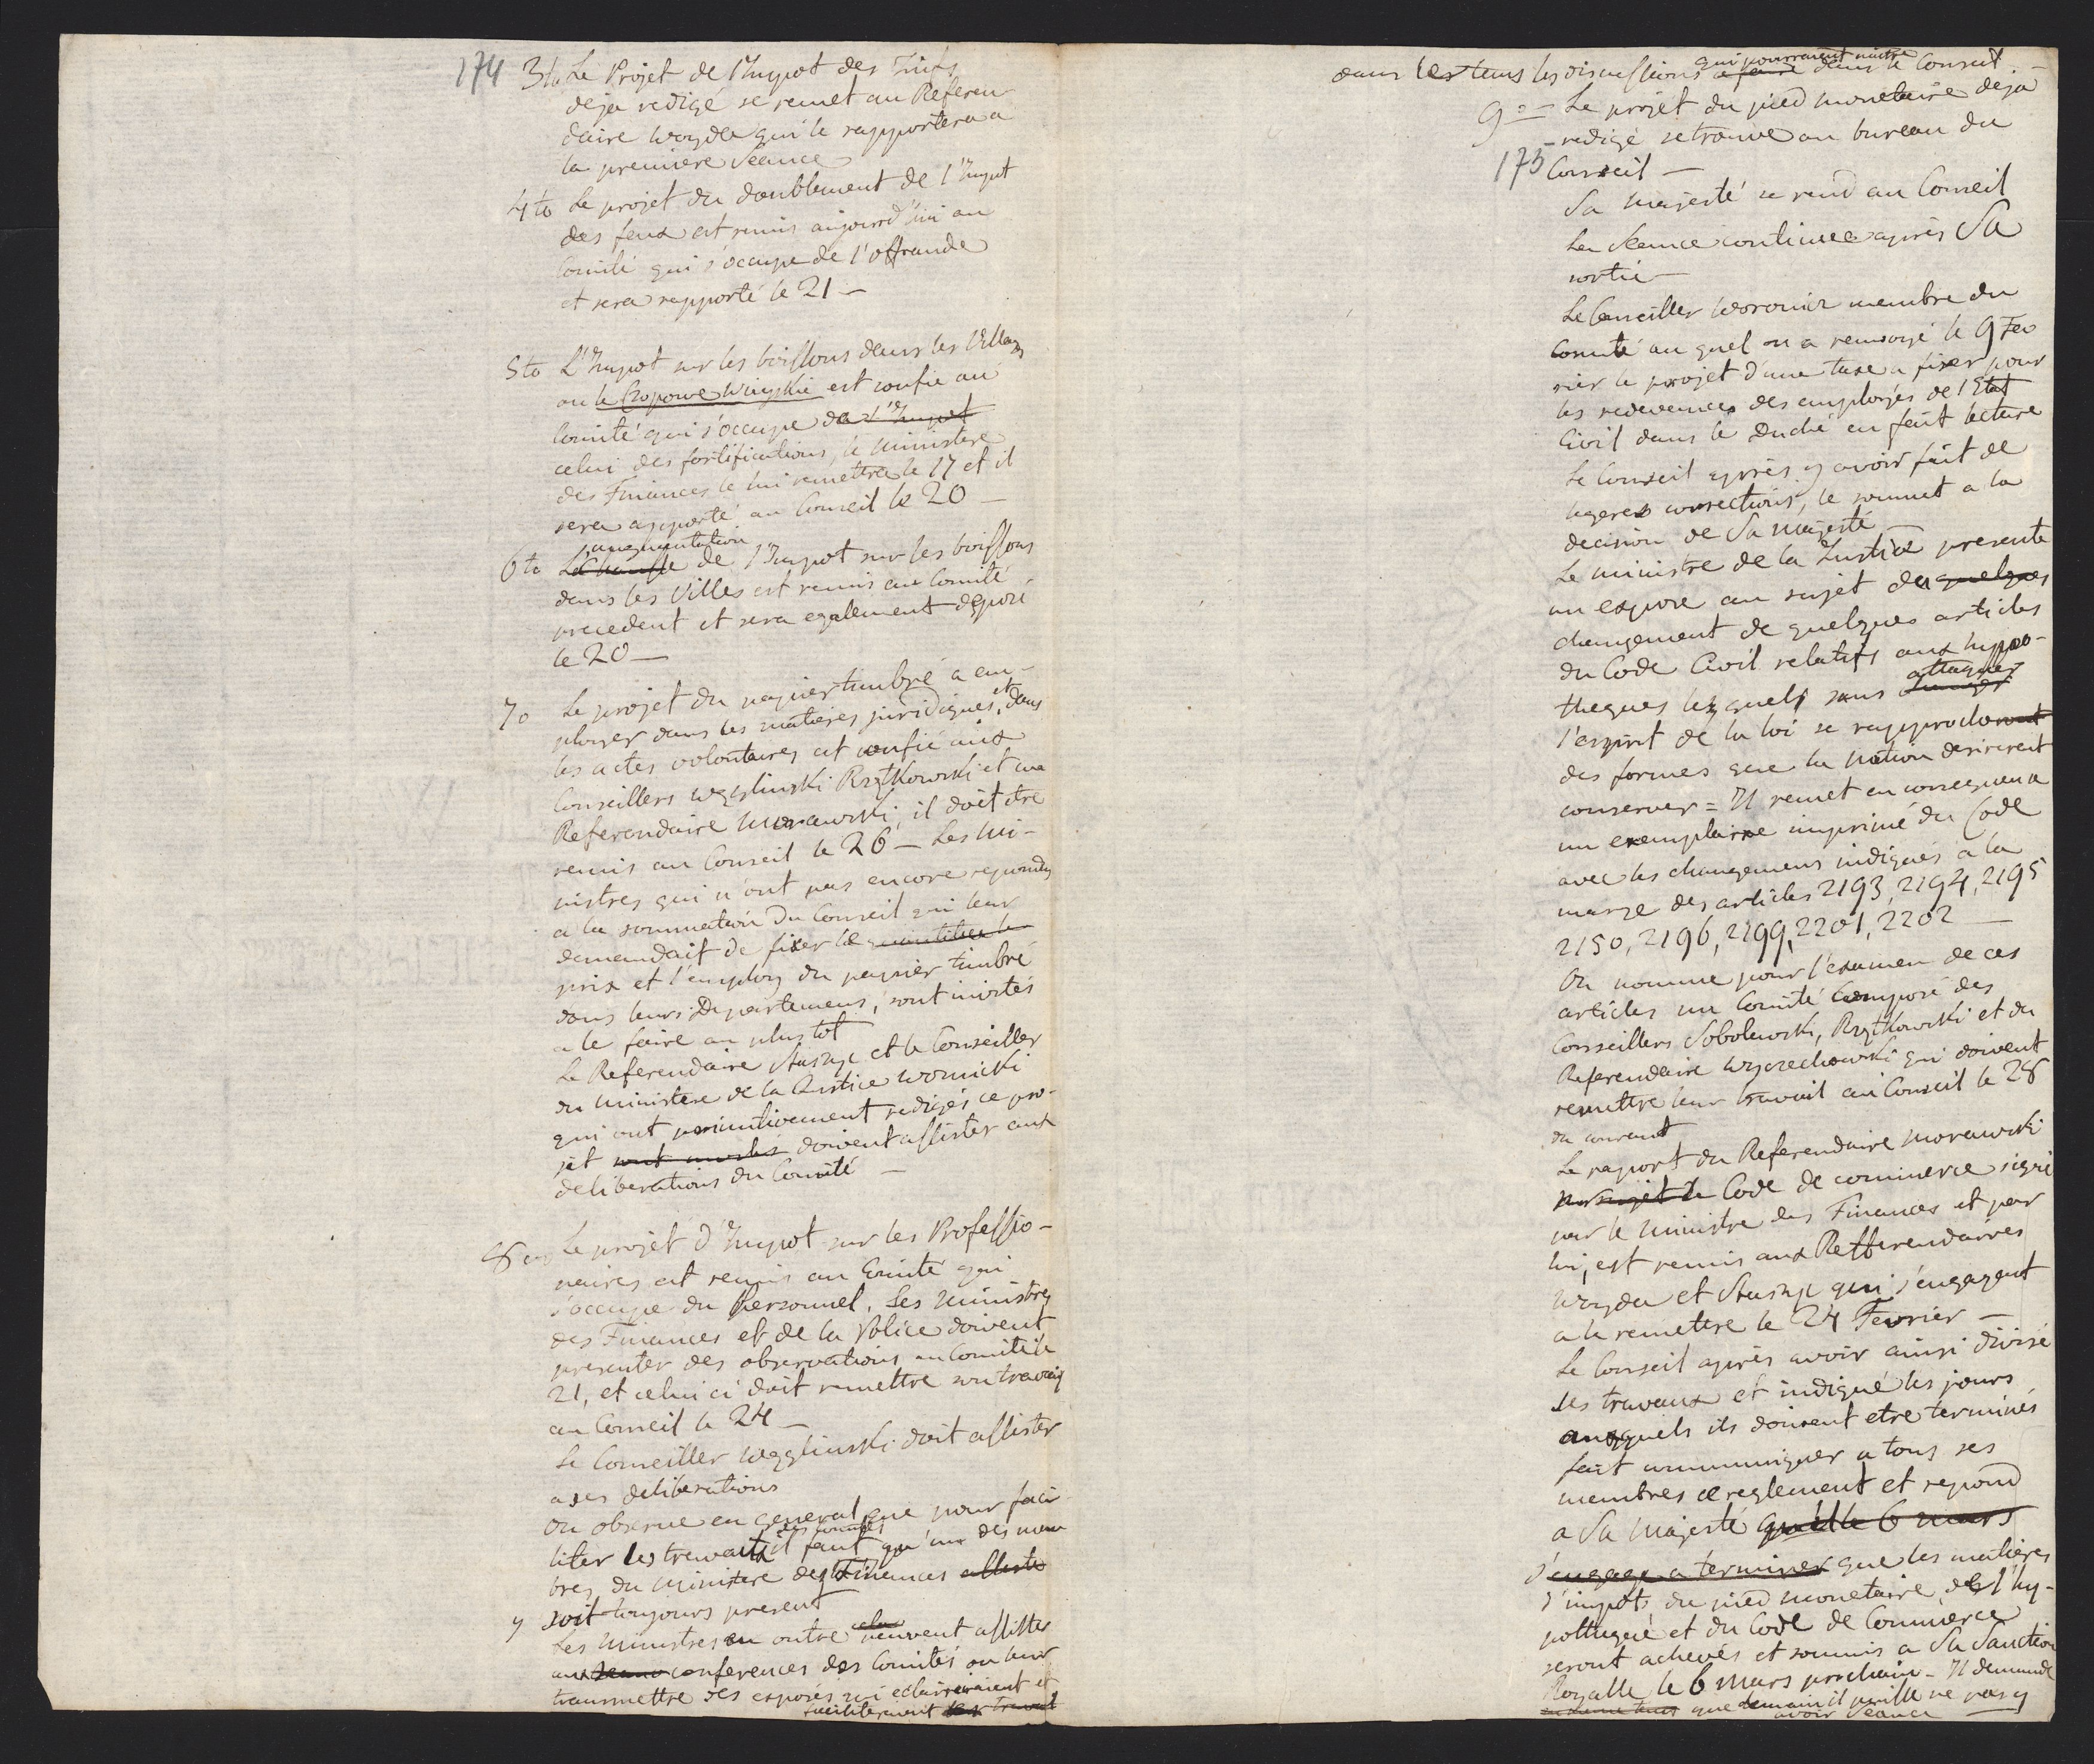 174 3tio Le Projet de l'Impot des Juifs
deja redigé se remet au Referen
daire Woyda qui le rapportera a
la premiere Séance
4to Le projet du doublement de l'Impot
des feux est remis aujourd'hui au
Comité qui s'occupe de l'offrande
et sera rapporté le 21 —
5to L'Impot sur les boissons dans les Villages
ou le Czopowe Wieyskie est confie au
Comité qui s'occupe de l'Impot
celui des fortifications, le Ministere
des Finances le lui remettra le 17 et il
sera apporté au Conseil le 20 —
l'augmentation
6to La hausse de l'Impot sur les boissons
dans les Villes est remis au Comité
precedent et sera egalement deposé
le 20 —
7o Le projet du papier timbré a em-
ployer dans les matieres juridiques, et dans
les actes volontaires est confié aux
Conseillers Węgliński Rzętkowski et au
Referendaire Morawski, il doit etre
remis au Conseil le 26 — Les Mi-
nistres qui n'ont pas encore repondu
a la sommation du Conseil qui leur
demandait de fixer le
prix et l'employ du papier timbré
dans leurs Departemens, sont invités
a le faire au plus tôt
Le Referendaire Staszyc et le Conseiller
du Ministere de la Justice Woznicki
qui ont primitivement redigés ce pro-
jet sont invités doivent assister aux
deliberations du Comité —
8vo Le projet d'Impot sur les Professio-
naires est remis au Comité qui
s'occupe du Personnel. Les Ministres
des Finances et de la Police doivent
presenter des observations au Comité le
21, et celui ci doit remettre son travail
au Conseil le 24 —
Le Conseiller Węgliński doit assister
a ses deliberations
On observe en general que pour faci-
liter les travaux des Comités il faut qu'un des mem
bres du Ministere des Finances assiste
soit toujours present
y Les Ministres en outre peuvent assister
aux conferences des Comités ou leur
transmettre des exposés qui eclairciraient et
faciliteraient leur travail
dans les tems les discussions a faire qui pourraient naitre dans le Conseil
9o — Le projet du pied monetaire deja
redigé se trouve au bureau du
175 Conseil —
Sa Majesté se rend au Conseil
La Séance continuée après Sa
sortie —
Le Conseiller Woronicz membre du
Comité au quel on a renvoyé le 9 Fev
rier le projet d'une taxe a fixer pour
les redevences des employés de l'Etat
Civil dans le Duché en fait lecture
Le Conseil après y avoir fait de
legeres corrections, le soumet a la
decision de Sa Majesté —
Le Ministre de la Justice presente
un expose au sujet du quelques
changement de quelques articles
du Code Civil relatifs aux hypo-
theques lesquels sans changer attaquer
l'esprit de la loi se rapprochent
des formes que la Nation desirerait
conserver = Il remet en consequence
un exemplaire imprimé du Code
avec les changemens indiqués a la
marge des articles 2193, 2194, 2195
2150, 2196, 2199, 2201, 2202 —
On nomme pour l'examen de ces
articles un Comité composé des
Conseillers Sobolewski, Rzętkowski et du
Referendaire Wyczechowski qui doivent
remettre leur travail au Conseil le 28
du courant
Le raport du Referendaire Morawski
sur sujet du Code de commerce signé
par le Ministre des Finances et par
lui, est remis aux Refferendaires
Woyda et Staszyc qui s'engagent
a le remettre le 24 Fevrier —
Le Conseil après avoir ainsi divisé
ses travaux et indiqué les jours
auxquels ils doivent etre terminés
fait communiquer a tous ses
membres ce reglement et repond
a Sa Majesté qu'il le 6 mars
s'engage a terminer que les matières
d'impots du pied monetaire, de l'hy-
potheque et du Code de Commerce
seront achevés et soumis a Sa Sanction
Royalle le 6 Mars prochain — Il demande
en meme tems que demain il puisse ne pas y
avoir Séance